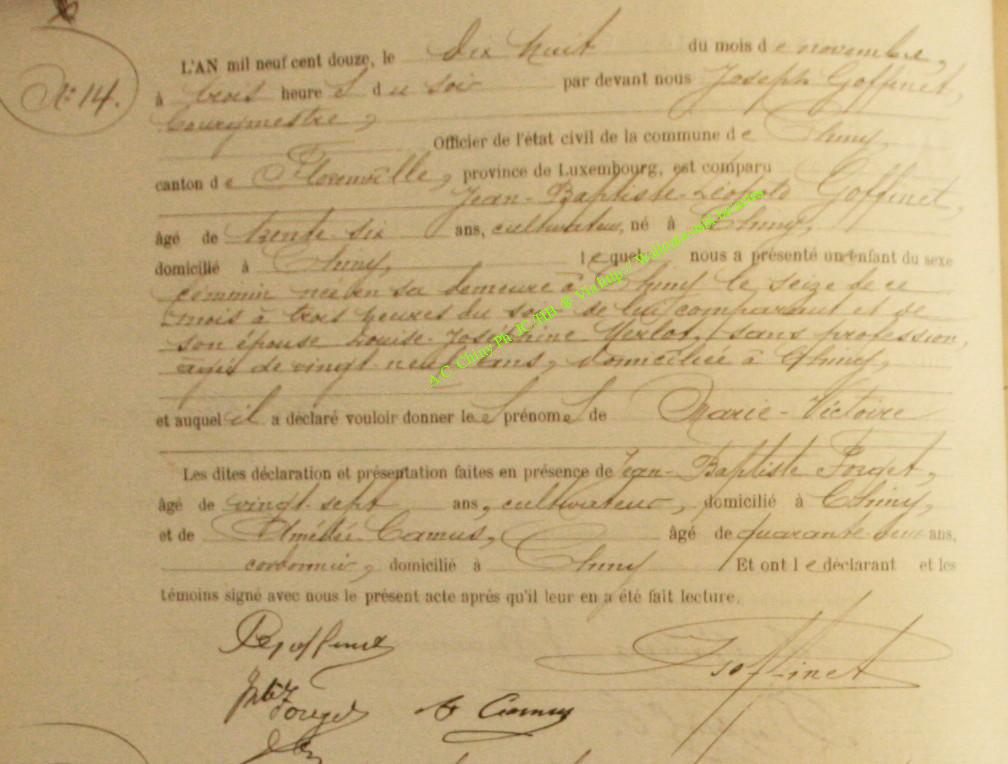 N° 14.
L'AN mil neuf cent douze, le dix huit du mois de novembre,
à trois heures du soir par devant nous Joseph Goffinet,
bourgmestre,
Officier de l'état civil de la commune de Chiny,
canton de Florenville, province de Luxembourg, est comparu
Jean-Baptiste-Léopold Goffinet,
âgé de trente six ans, cultivateur, né à Chiny,
domicilié à Chiny, lequel nous a présenté un enfant du sexe
féminin née en sa demeure à Chiny le seize de ce
mois à trois heures du soir de lui comparant et de
son épouse Louise-Joséphine Merlot, sans profession,
âgée de vingt neuf ans, domiciliée à Chiny,
et auquel il a déclaré vouloir donner les prénoms de Marie-Victoire
Les dites déclaration et présentation faites en présence de Jean-Baptiste Forget,
âgé de vingt sept ans, cultivateur, domicilié à Chiny,
et de Amédée Camus, âgé de quarante deux ans,
cordonnier, domicilié à Chiny Et ont le déclarant et les
témoins signé avec nous le présent acte après qu'il leur en a été fait lecture.
Goffinet
Forget
A Camus
A.C. Chiny Ph. JC. HB. ® Via http://